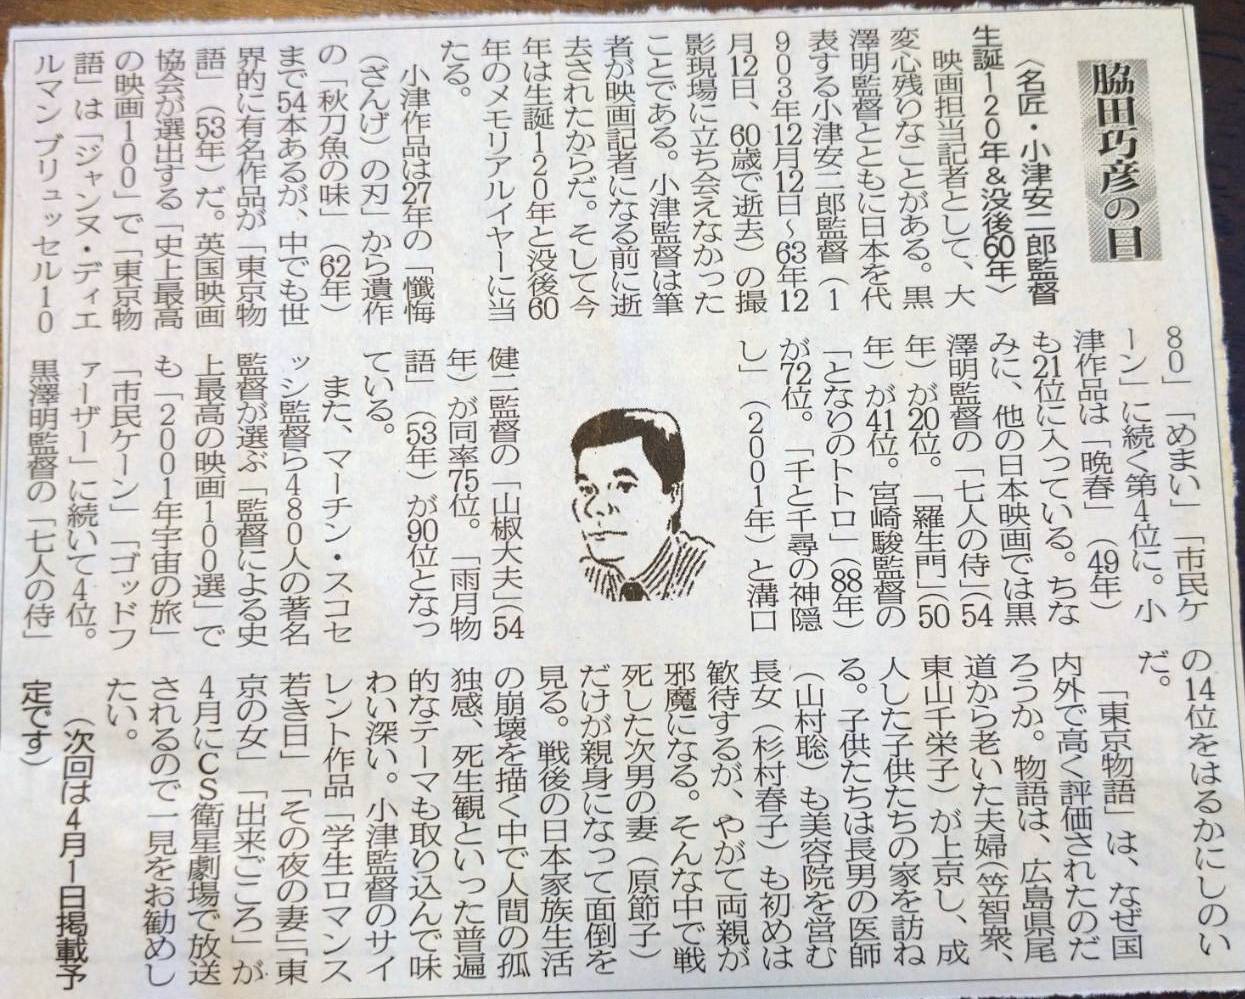 脇田巧彦の目
〈名匠・小津安二郎監督
生誕120年&没後60年〉
映画担当記者として、大
変心残りなことがある。黒
澤明監督とともに日本を代
表する小津安二郎監督（1
903年12月12日〜63年12
月12日、60歳で逝去）の撮
影現場に立ち会えなかった
ことである。小津監督は筆
者が映画記者になる前に逝
去されたからだ。そして今
年は生誕120年と没後60
年のメモリアルイヤーに当
たる。
小津作品は27年の「懺悔
（ざんげ）の刃」から遺作
の「秋刀魚の味」（62年）
まで54本あるが、中でも世
界的に有名作品が「東京物
語」（53年）だ。英国映画
協会が選出する「史上最高
の映画100」で「東京物
語」は「ジャンヌ・ディエ
ルマン ブリュッセル10
80」「めまい」「市民ケ
ーン」に続く第4位に。小
津作品は「晩春」（49年）
も21位に入っている。ちな
みに、他の日本映画では黒
澤明監督の「七人の侍」（54
年）が20位。「羅生門」（50
年）が41位。宮崎駿監督の
「となりのトトロ」（88年）
が72位。「千と千尋の神隠
し」（2001年）と溝口
健二監督の「山椒大夫」（54
年）が同率75位。「雨月物
語」（53年）が90位となっ
ている。
また、マーチン・スコセ
ッシ監督ら480人の著名
監督が選ぶ「監督による史
上最高の映画100選」で
も「2001年宇宙の旅」
「市民ケーン」「ゴッドフ
ァーザー」に続いて4位。
黒澤明監督の「七人の侍」
の14位をはるかにしのい
だ。
「東京物語」は、なぜ国
内外で高く評価されたのだ
ろうか。物語は、広島県尾
道から老いた夫婦（笠智衆、
東山千栄子）が上京し、成
人した子供たちの家を訪ね
る。子供たちは長男の医師
（山村聡）も美容院を営む
長女（杉村春子）も初めは
歓待するが、やがて両親が
邪魔になる。そんな中で戦
死した次男の妻（原節子）
だけが親身になって面倒を
見る。戦後の日本家族生活
の崩壊を描く中で人間の孤
独感、死生観といった普遍
的なテーマも取り込んで味
わい深い。小津監督のサイ
レント作品「学生ロマンス
若き日」「その夜の妻」「東
京の女」「出来ごころ」が
4月にCS衛星劇場で放送
されるので一見をお勧めし
たい。
（次回は4月1日掲載予
定です）